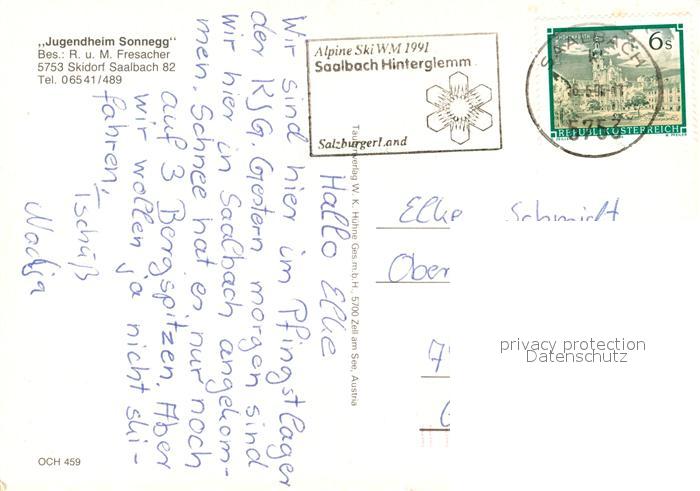 „Jugendheim Sonnegg"
Bes.: R. u. M. Fresacher
5753 Skidorf Saalbach 82
Tel. 06541/489
Alpine Ski WM 1991
Saalbach Hinterglemm
SalzburgerLand
SAALBACH
5753
6s
REPUBLIK ÖSTERREICH
Hallo Elke
Wir sind hier im Pfingstlager
der KJG. Gestern morgen sind
wir hier in Saalbach angekom-
men. Schnee hat es nur noch
auf 3 Bergspitzen. Aber
wir wollen ja nicht ski-
fahren,
Tschüß
Nadja
Tauernverlag W. K. Hühne Ges.m.b.H., 5700 Zell am See, Austria
Elke Schmidt
Ober
7
privacy protection
Datenschutz
OCH 459